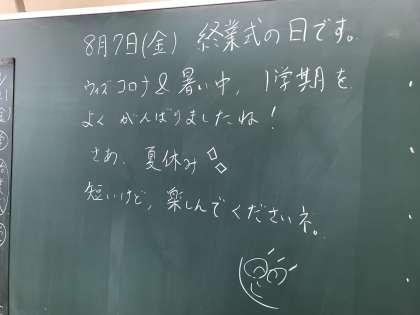 8月7日(金) 終業式の日です。
ウィズコロナ&暑い中、1学期を
よくがんばりましたね!
さあ、夏休み
短いけど、楽しんでくださいネ。